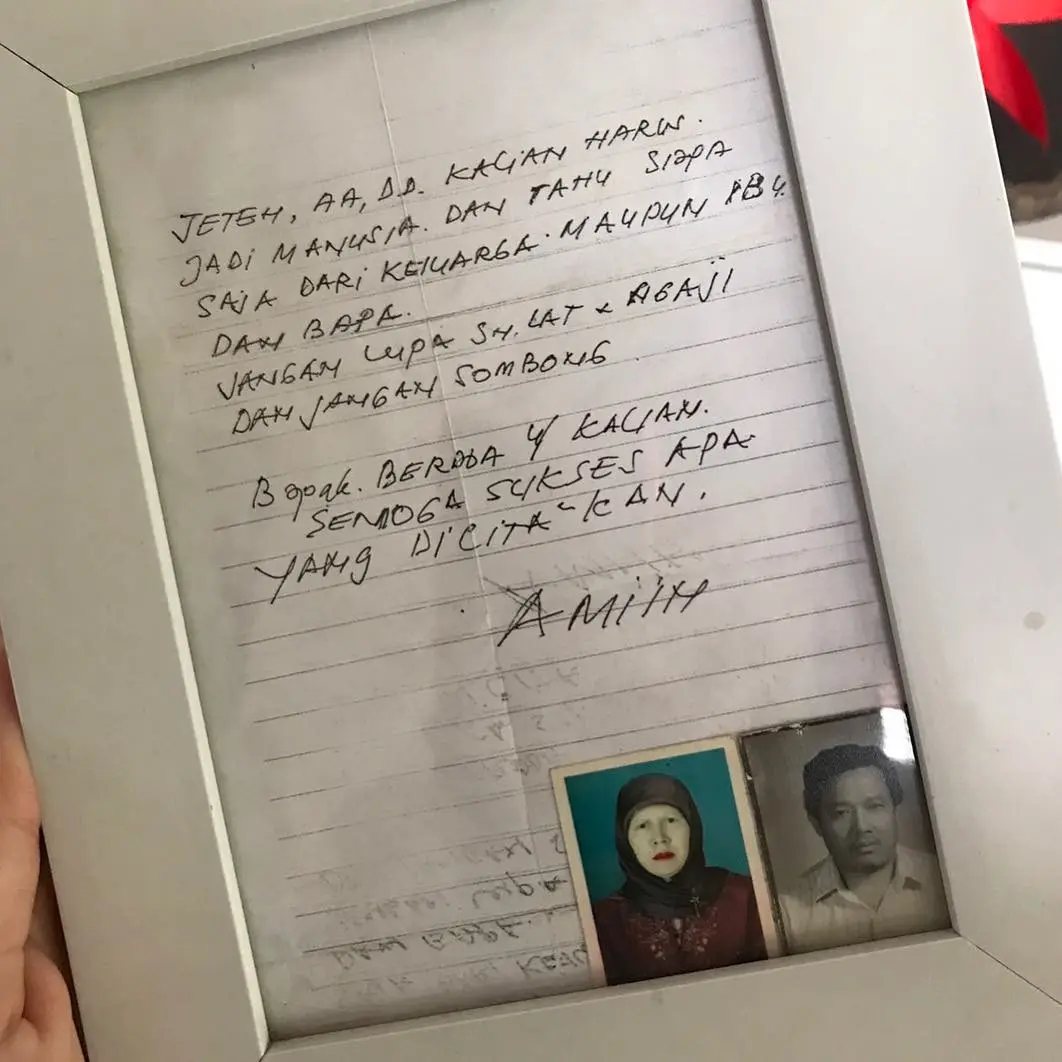 JETEH, AA, D.D. KALIAN HARUS.
JADI MANUSIA. DAN TAHU SIAPA
SAJA DARI KELUARGA. MAUPUN IBU.
DAN BAPA.
JANGAN LUPA SH.LAT & NGAJI
DAN JANGAN SOMBONG.
Bapak. BERDOA U/ KALIAN.
SEMOGA SUKSES APA
YANG DICITA"KAN.
AMIIN